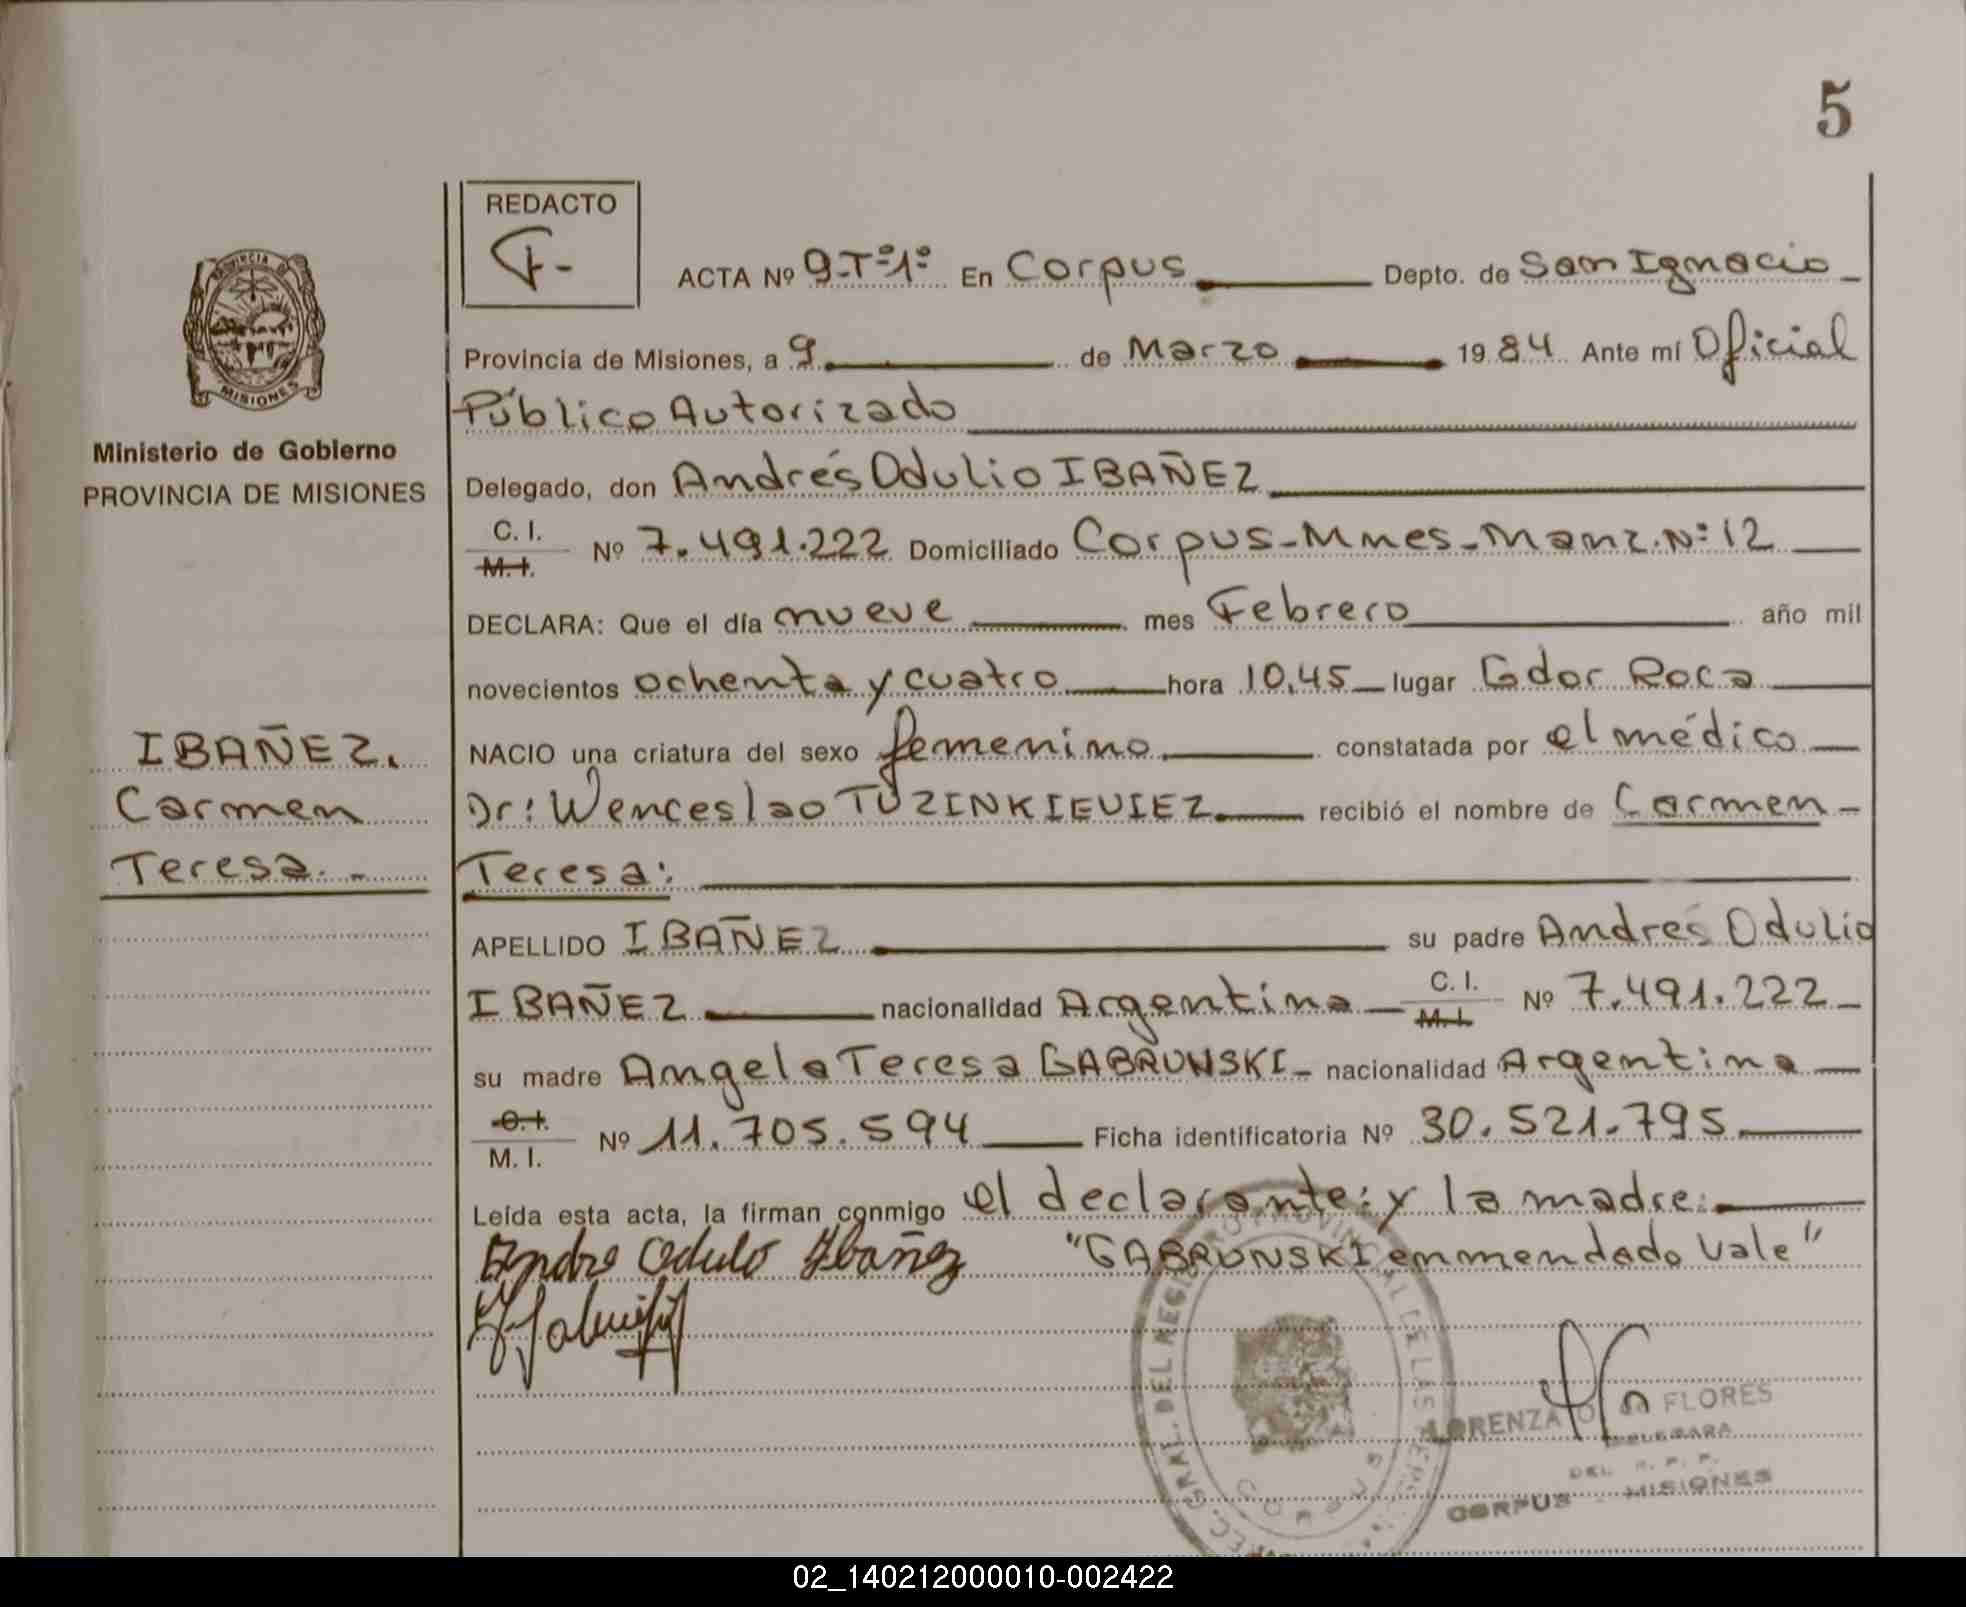 5
REDACTO
F-
PROVINCIA DE
MISIONES
ACTA Nº 9-Tº1º En Corpus Depto. de San Ignacio
Provincia de Misiones, a 9 de Marzo 1984 Ante mí Oficial
Público Autorizado
Ministerio de Gobierno
PROVINCIA DE MISIONES
Delegado, don Andrés Odulio IBAÑEZ
C. I.
M. I. Nº 7.491.222 Domiciliado Corpus-Mnes-Manz.Nº 12
DECLARA: Que el día nueve mes Febrero año mil
novecientos ochenta y cuatro hora 10,45 lugar Gdor Roca
IBAÑEZ.
Carmen
Teresa.-
NACIO una criatura del sexo femenino constatada por el médico
Dr: Wenceslao TUZINKIEVIEZ recibió el nombre de Carmen-
Teresa:
APELLIDO IBAÑEZ su padre Andrés Odulio
IBAÑEZ nacionalidad Argentina C. I.
M. I. Nº 7.491.222
su madre Angela Teresa GABRUNSKI nacionalidad Argentina
C. I.
M. I. Nº 11.705.594 Ficha identificatoria Nº 30.521.795
Leída esta acta, la firman conmigo el declarante: y la madre:
Andre Odulo Ibañez "GABRUNSKI enmendado Vale"
LORENZA FLORES
DELEGADA
DEL R. P. P.
CORPUS - MISIONES
CORPUS
02_140212000010-002422